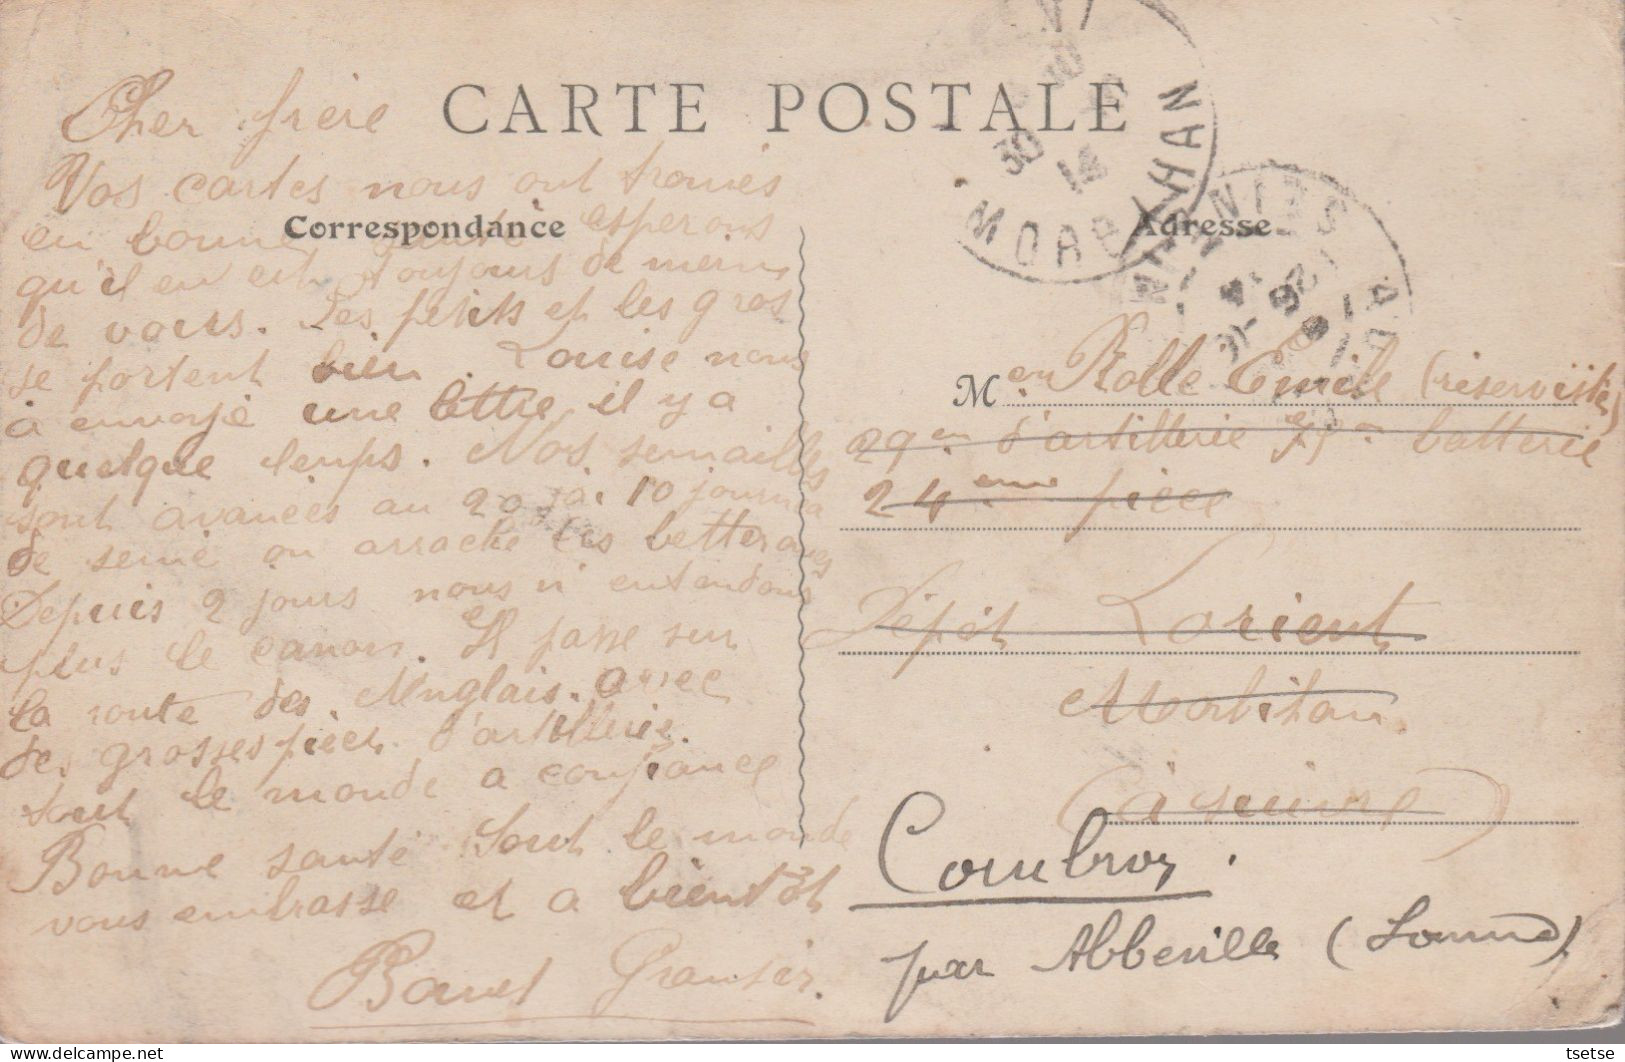 CARTE POSTALE
Correspondance
Adresse
Cher frère
Vos cartes nous ont trouvés
en bonne santé esperons
qu'il en est toujours de meme
de vous. Les petits et les gros
se portent bien. Louise nous
à envoyé une lettre il y a
quelque temps. Nos semailles
sont avancées au 20 a 10 journ
de semé on arrache les betteraves
Depuis 2 jours nous n'entendons
plus le canon. Il passe sur
la route des Anglais avec
des grosses pièces d'artillerie.
tout le monde a confiance
Bonne santé tout le monde
vous embrasse et a bientôt
30 10
14
MORBIHAN
M
Rolle Emile (réserviste)
29em d'artillerie batterie
24eme pièce
Dépôt Lorient
Morbihan
(à suivre)
par Abbeville (Somme)
tsetse